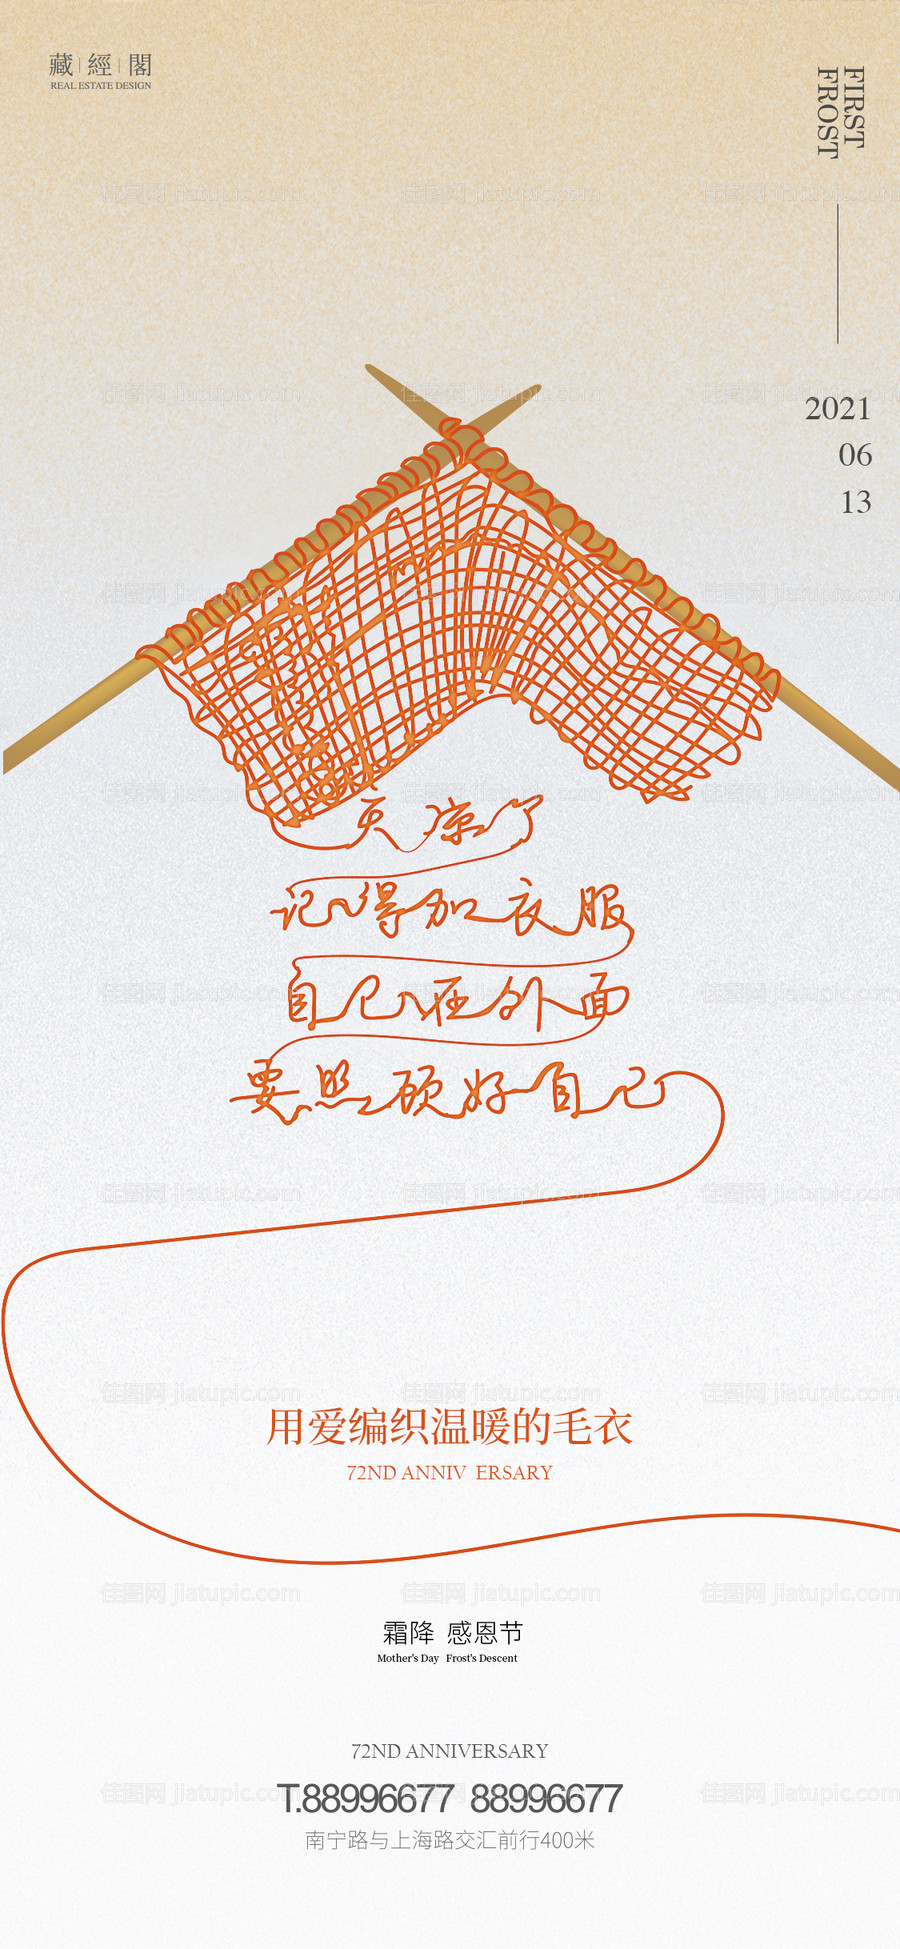 藏經閣
REAL ESTATE DESIGN
FIRST
FROST
2021
06
13
天凉了
记得加衣服
自己在外面
要照顾好自己
用爱编织温暖的毛衣
72ND ANNIV ERSARY
霜降 感恩节
Mother's Day Frost's Descent
72ND ANNIVERSARY
T.88996677 88996677
南宁路与上海路交汇前行400米
佳图网 jiatupic.com